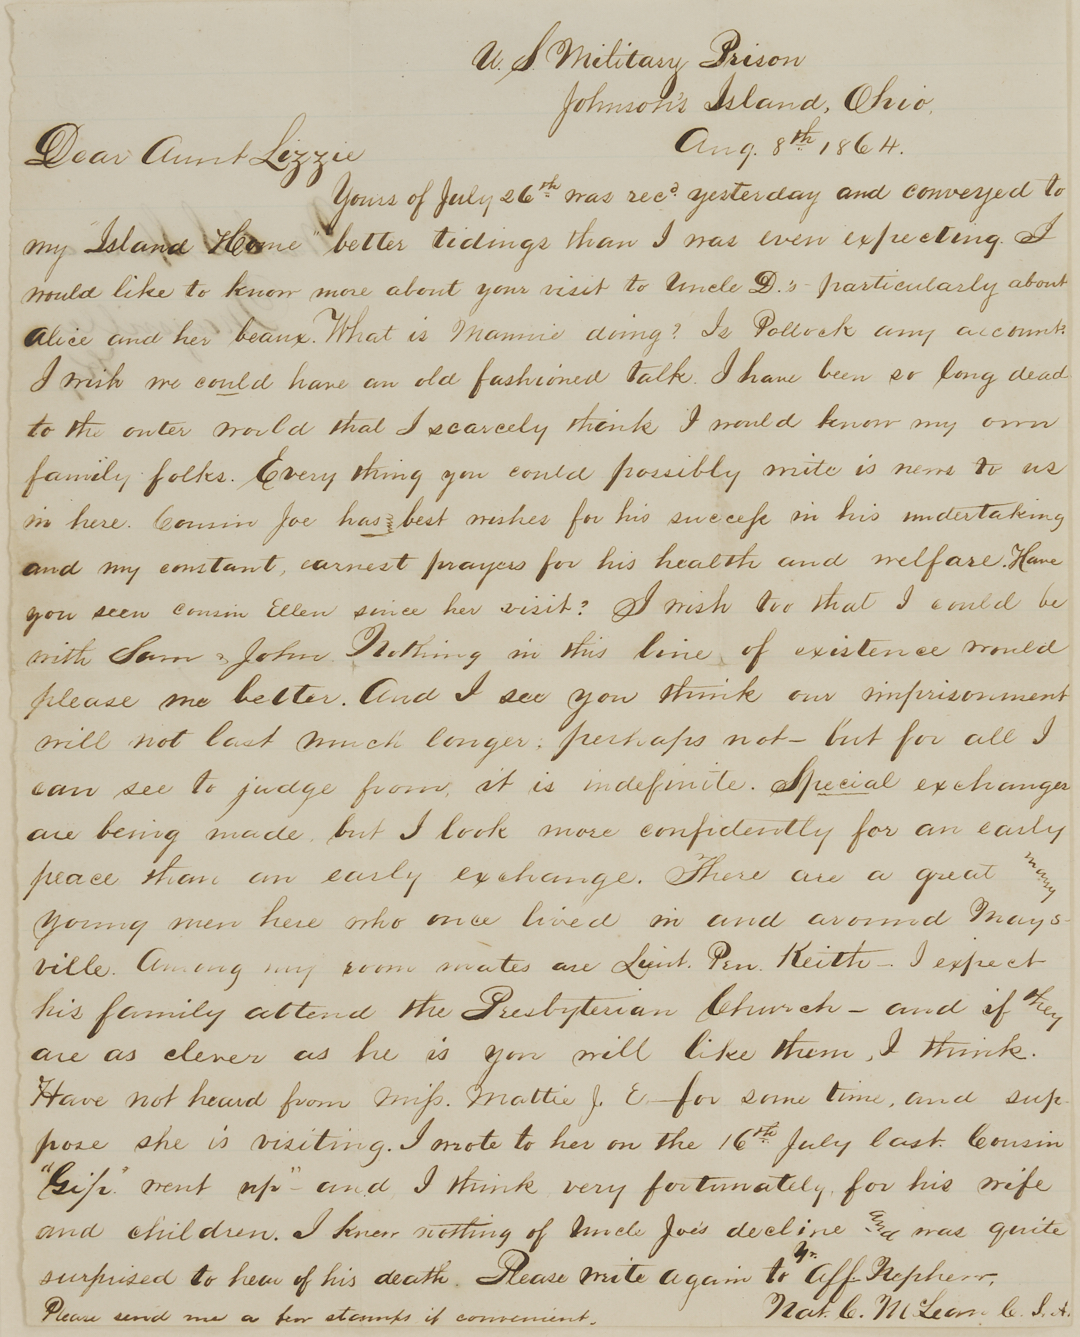 U. S. Military Prison
Johnson's Island, Ohio.
Aug. 8th 1864.
Dear Aunt Lizzie
Yours of July 26th was recd. yesterday and conveyed to
my "Island Home" better tidings than I was even expecting. I
would like to know more about your visit to Uncle D.'s - particularly about
Alice and her beaux. What is Mannie doing? Is Pollock any account.
I wish we could have an old fashioned talk. I have been so long dead
to the outer world that I scarcely think I would know my own
family folks. Every thing you could possibly write is news to us
in here. Cousin Joe has my best wishes for his success in his undertaking
and my constant, earnest prayers for his health and welfare. Have
you seen cousin Ellen since her visit? I wish too that I could be
with Sam & John. Nothing in this line of existence would
please me better. And I see you think our imprisonment
will not last much longer; perhaps not - but for all I
can see to judge from, it is indefinite. Special exchanges
are being made, but I look more confidently for an early
peace than an early exchange. There are a great many
young men here who once lived in and around Mays-
ville. Among my room mates are Lieut. Pen. Keith - I expect
his family attend the Presbyterian Church - and if they
are as clever as he is you will like them, I think.
Have not heard from Miss. Mattie J. E. - for some time, and sup-
pose she is visiting. I wrote to her on the 16th July last. Cousin
"Gip." went up" - and, I think, very fortunately, for his wife
and children. I knew nothing of Uncle Joe's decline and was quite
surprised to hear of his death. Please write again to Yr. Aff. Nephew,
Nat. C. McLean. C. S. A.
Please send me a few stamps if convenient.